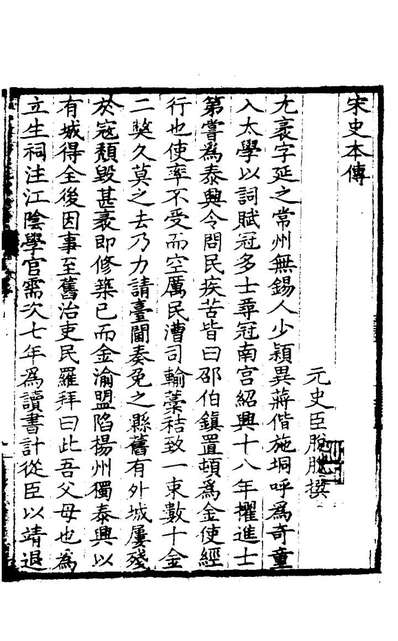 宋史本傳
元史臣脫脫撰
尤袤字延之常州無錫人少穎異蔣偕施坰呼為奇童
入太學以詞賦冠多士尋冠南宫紹興十八年擢進士
第嘗為泰興令問民疾苦皆曰邵伯鎮置頓為金使經
行也使率不受而空厲民漕司輸藁秸致一束數十金
二獘久莫之去乃力請臺閫奏免之縣舊有外城屢殘
於寇頽毀甚袤即修築已而金渝盟陷楊州獨泰興以
有城得全後因事至舊治吏民羅拜曰此吾父母也為
立生祠注江陰學官需次七年為讀書計從臣以靖退